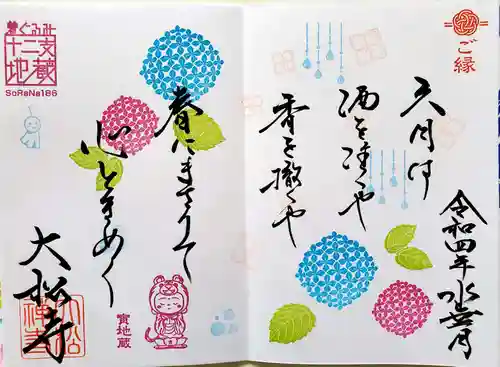 ご縁
六月は
酒を注ぐや
香を撒くや
令和四年水無月
春にまさりて
心ときめく
大松寺
着ぐるみ
十二支
地蔵
SoRaNa186
寅地蔵